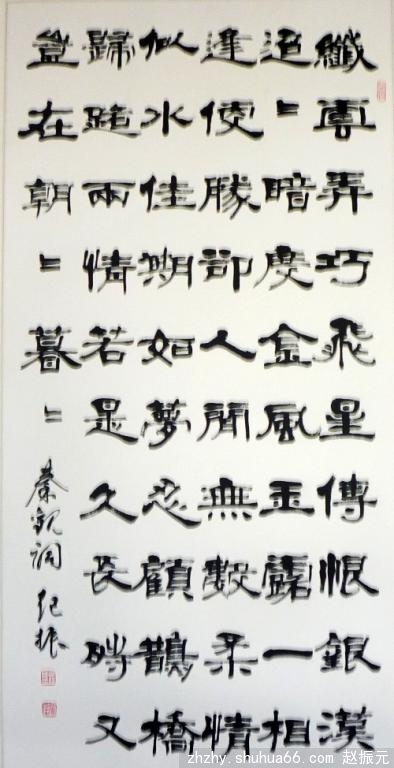 纖雲弄巧飛星傳恨銀漢
迢〻暗度金風玉露一相
逢便勝卻人間無數柔情
似水佳期如夢忍顧鵲橋
歸路兩情若是久長時又
豈在朝〻暮〻
秦觀詞 纪振
zhzhy.shuhua66.com 赵振元